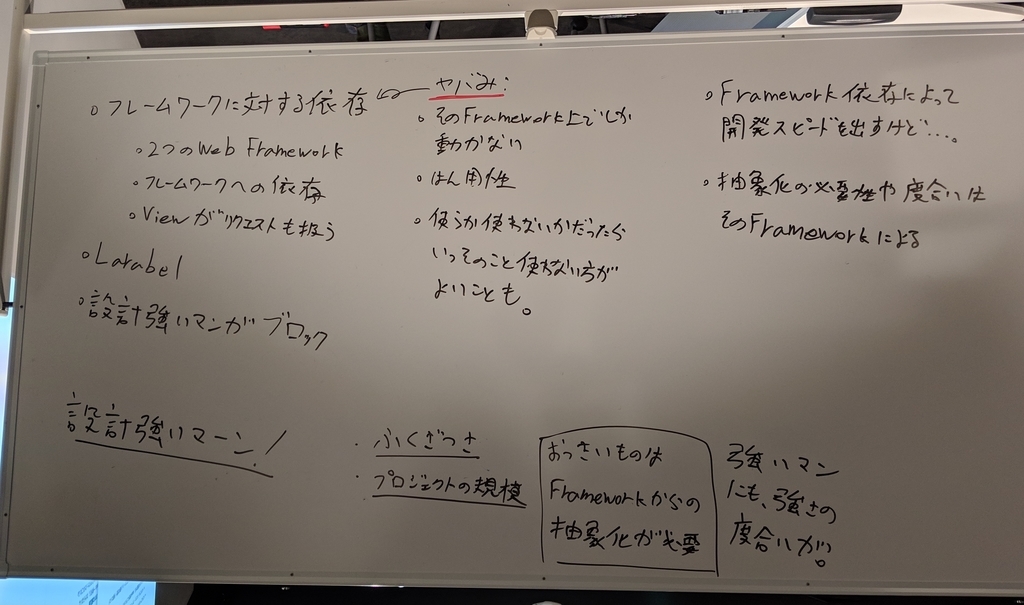 ○ フレームワークに対する依存
○ 2つのWeb Framework
○ フレームワークへの依存
○ Viewがリクエストも扱う
○ Larabel
○ 設計強いマンがブロック
ヤバみ:
○ そのFramework上でしか
動かない
○ はん用性
○ 使うか使わないかだったら
いっそのこと使わない方が
よいことも。
○ Framework依存によって
開発スピードを出すけど…。
○ 抽象化の必要性や度合いは
そのFrameworkによる
設計強いマーン!
・ふくざつさ
・プロジェクトの規模
おっきいものは
Frameworkからの
抽象化が必要
強いマン
にも、強さの
度合いが。